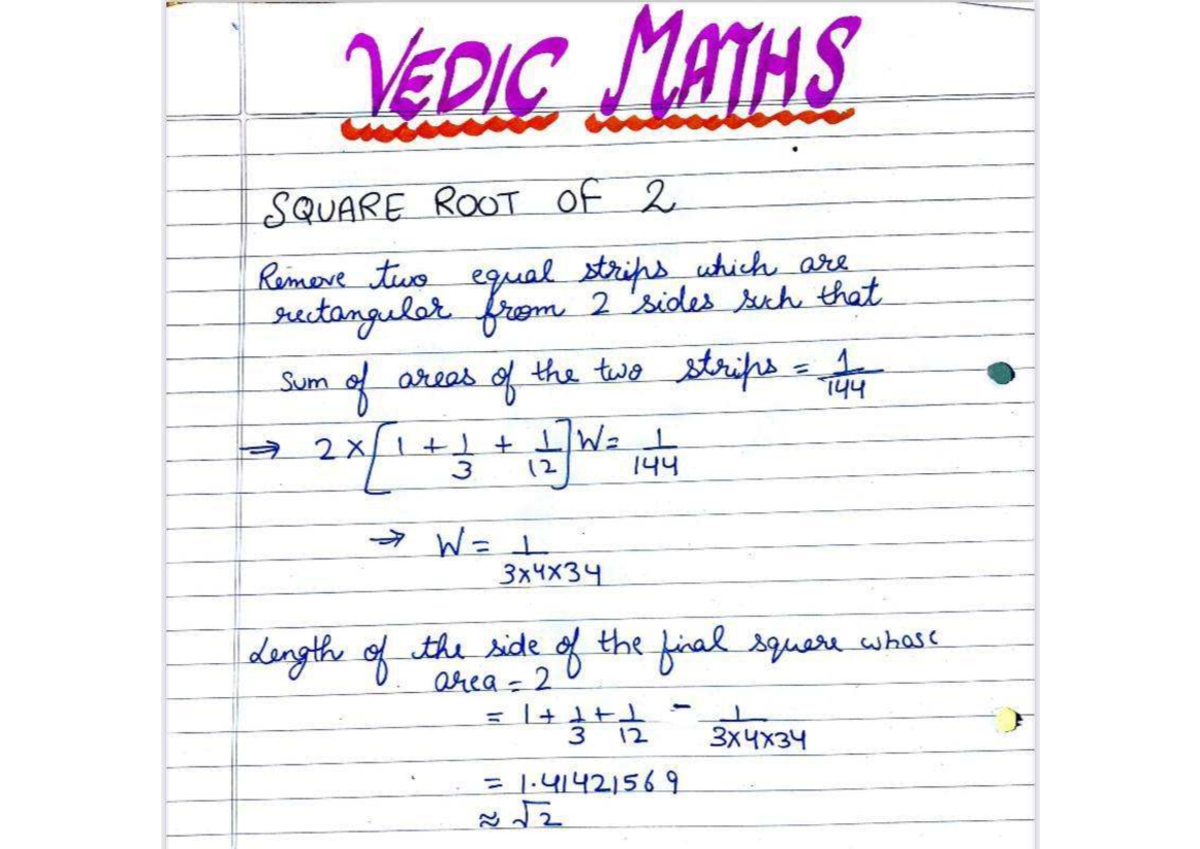 VEDIC MATHS
SQUARE ROOT OF 2
Remove two equal strips which are
rectangular from 2 sides such that
Sum of areas of the two strips = 1/144
⇒ 2 × [1 + 1/3 + 1/12] W = 1/144
⇒ W = 1/3×4×34
Length of the side of the final square whose
area = 2
= 1 + 1/3 + 1/12 - 1/3×4×34
= 1.41421569
≈ √2